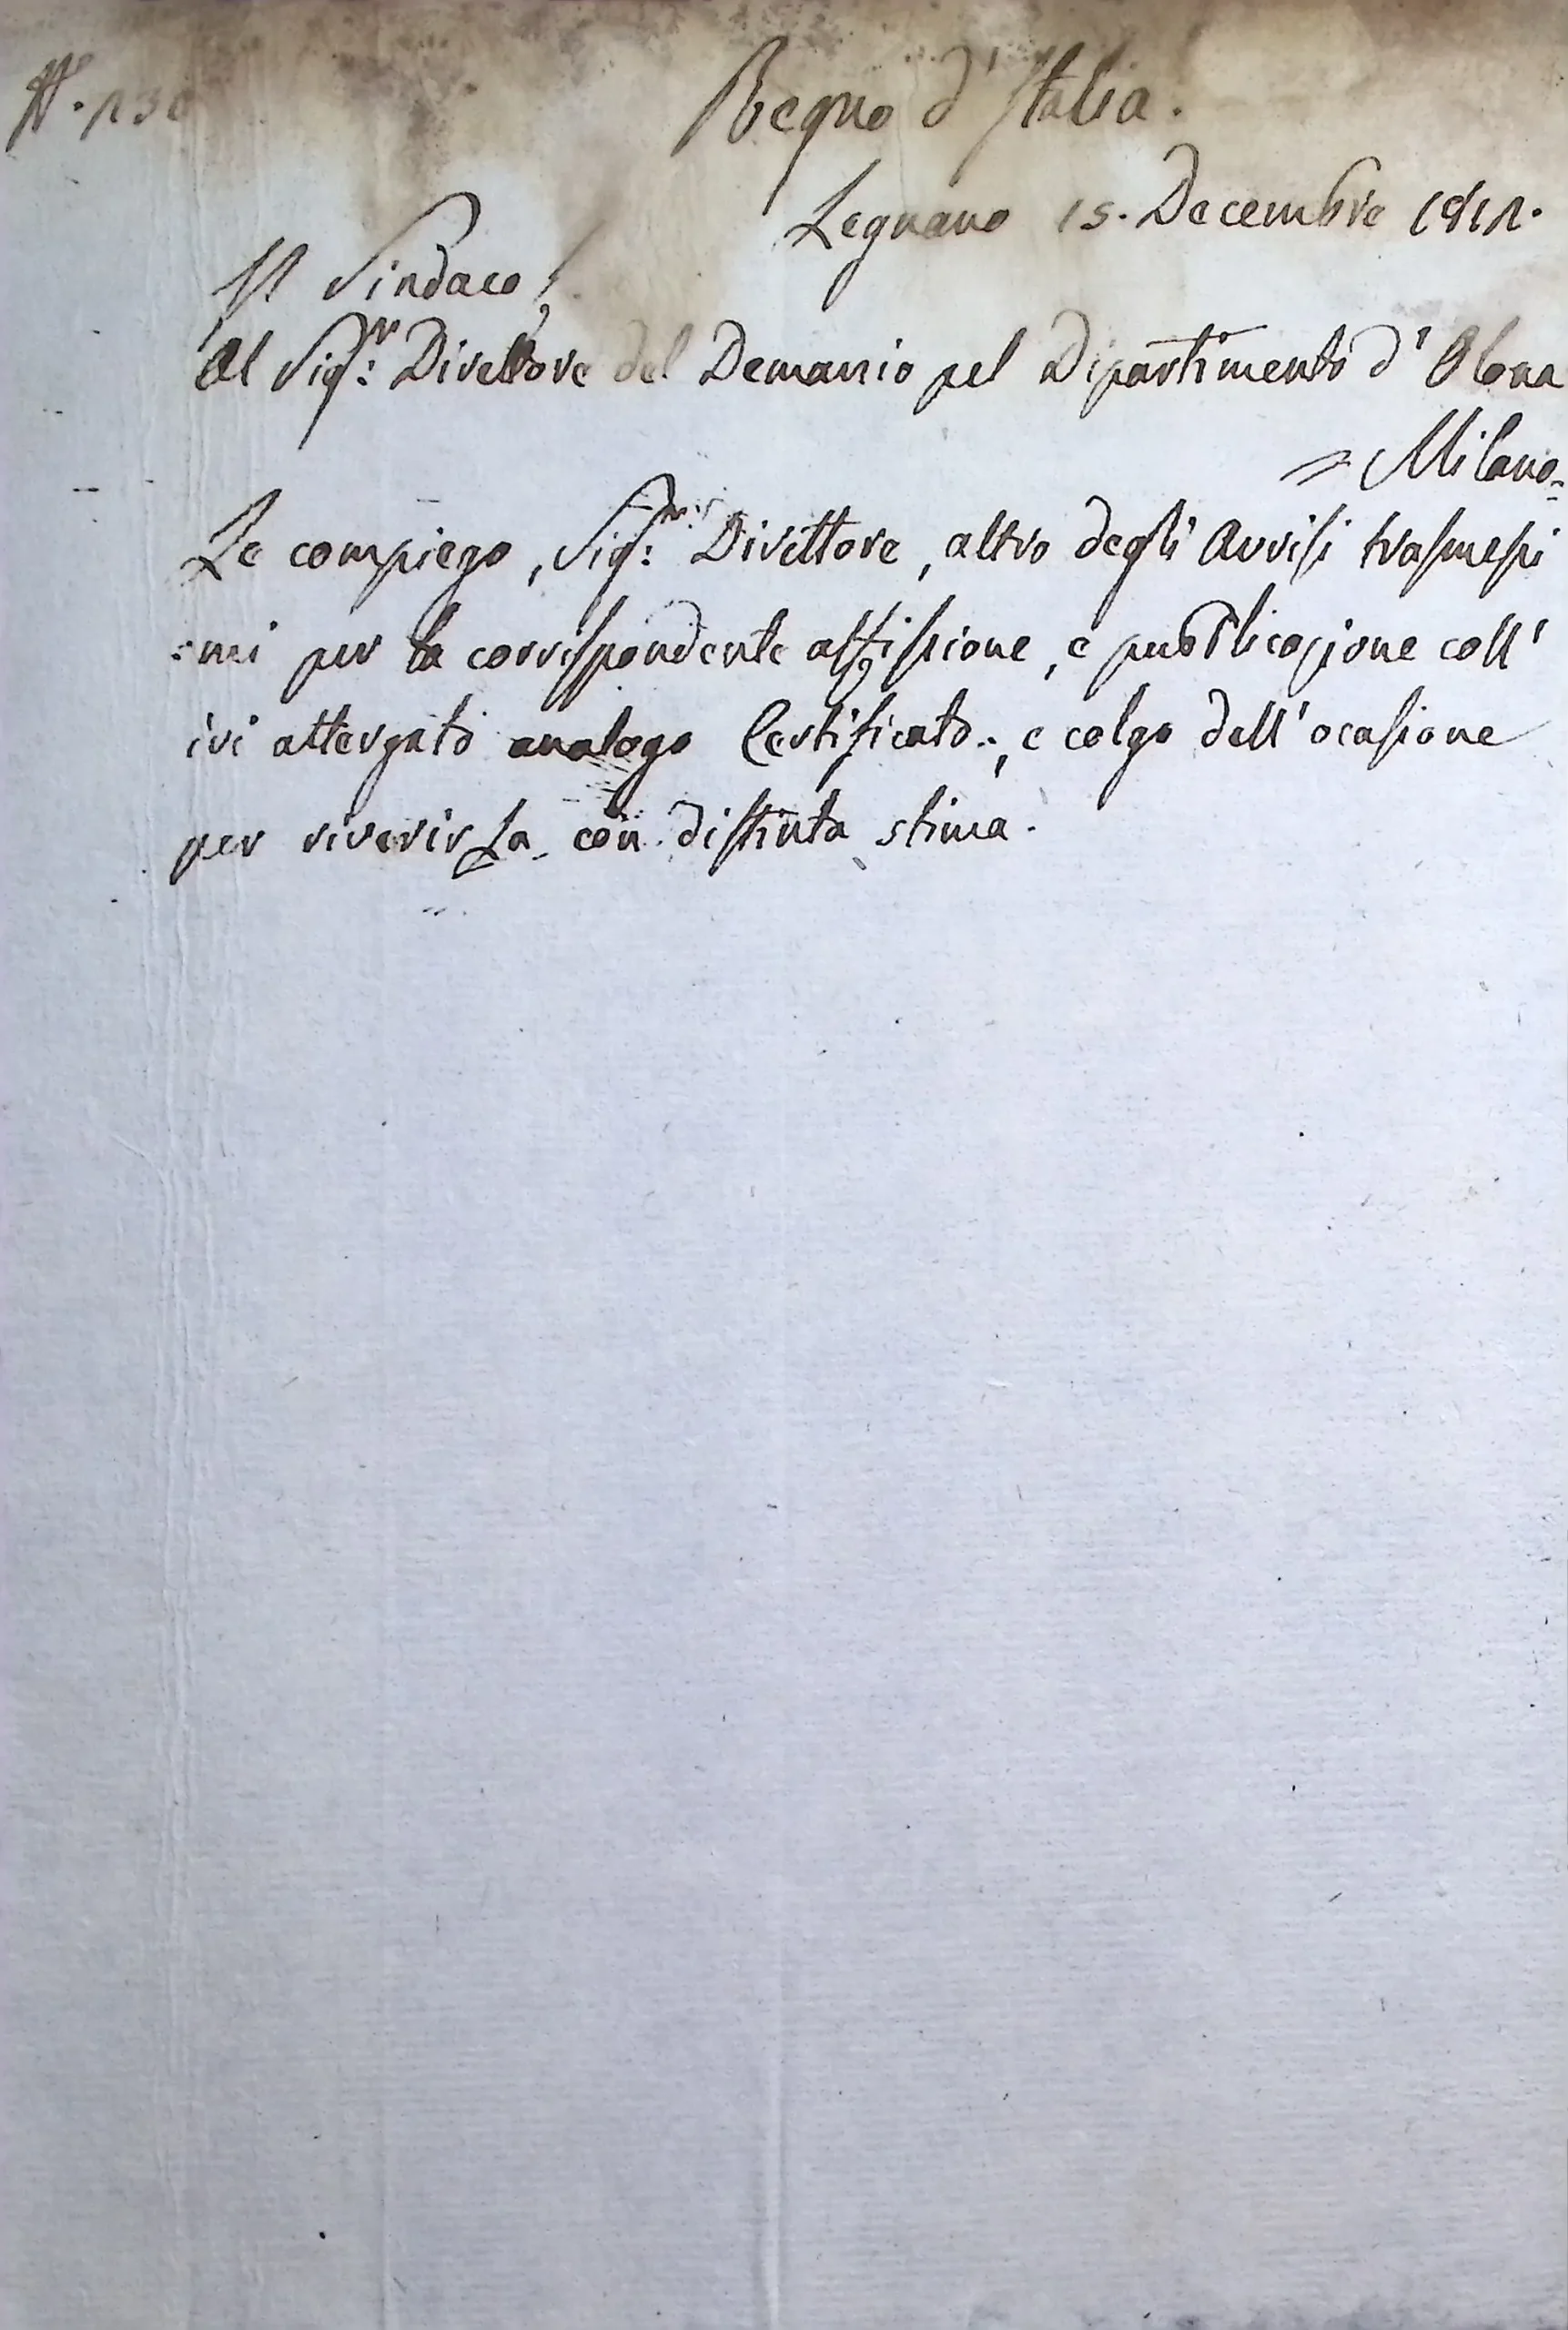 N.° 130
Regno d'Italia.
Legnano 15. Decembre 1811.
Il Sindaco,
Al Sig.r Direttore del Demanio pel Dipartimento d'Olona
= Milano.
Le compiego, Sig.r Direttore, altro degli Avvisi trasmessi
mi per la corrispondente affissione, e pubblicazione coll'
ivi attergato analogo Certificato., e colgo dell'ocasione
per riverirLa con distinta stima.